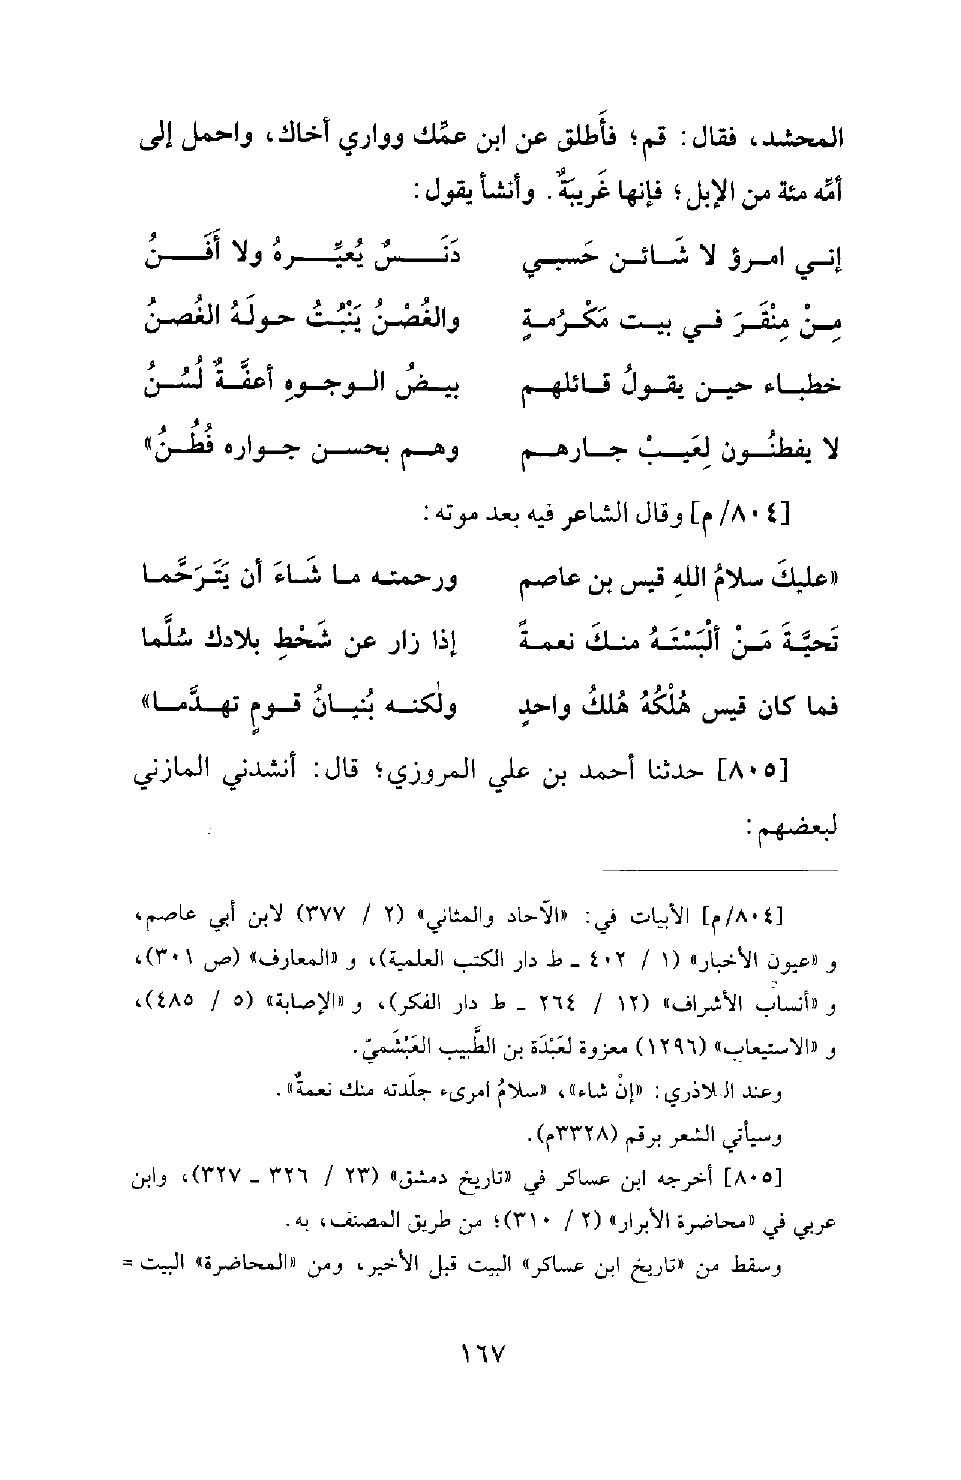 المحشد، فقال: قم؛ فأَطلق عن ابن عمَّك وواري أخاك، واحمل إلى
أمَّه مئة من الإبل؛ فإنها غَريبَةٌ. وأنشأ يقول:
إنـي امـرؤ لا شَـائـن حَسبـي دَنَـسٌ يُعيِّـرهُ ولا أَفَـنُ
مِـنْ مِنْقَـرَ فـي بيـت مَكْـرُمـةٍ والغُصْـنُ يَنْبُـتُ حـولَـهُ الغُصـنُ
خطبـاء حيـن يقـولُ قـائلهـم بيـضُ الـوجـوهِ أعفَّـةٌ لُسُـنُ
لا يفطنُـون لِعَيـبْ جـارهـم وهـم بحسـن جـواره فُطُـنُ»
[٨٠٤/ م] وقال الشاعر فيه بعد موته:
«عليكَ سلامُ اللهِ قيس بن عاصم ورحمتـه مـا شَـاءَ أن يَتَرَحَّمـا
تَحيَّـةَ مَـنْ أَلْبَسْتَـهُ منـكَ نعمـةً إذا زار عن شَحْطٍ بلادك سَلَّما
فما كان قيس هُلْكُهُ هُلكُ واحدٍ ولٰكنـه بُنيـانُ قـومٍ تهـدَّمـا»
[٨٠٥] حدثنا أحمد بن علي المروزي؛ قال: أنشدني المازني
لبعضهم:
[٨٠٤/م] الأبيات في: «الآحاد والمثاني» (٢ / ٣٧٧) لابن أبي عاصم،
و «عيون الأخبار» (١ / ٤٠٢ ـ ط دار الكتب العلمية)، و «المعارف» (ص ٣٠١)،
و «أنساب الأشراف» (١٢ / ٢٦٤ ـ ط دار الفكر)، و «الإصابة» (٥ / ٤٨٥)،
و «الاستيعاب» (١٢٩٦) معزوة لعَبْدَة بن الطَّبيب العَبْشَميّ.
وعند البلاذري: «إنْ شاء»، «سلامُ امرىء جلّدته منك نعمةً».
وسيأتي الشعر برقم (٣٣٢٨م).
[٨٠٥] أخرجه ابن عساكر في «تاريخ دمشق» (٢٣ / ٣٢٦ ـ ٣٢٧)، وابن
عربي في «محاضرة الأبرار» (٢ / ٣١٠)؛ من طريق المصنف، به.
وسقط من «تاريخ ابن عساكر» البيت قبل الأخير، ومن «المحاضرة» البيت =
١٦٧